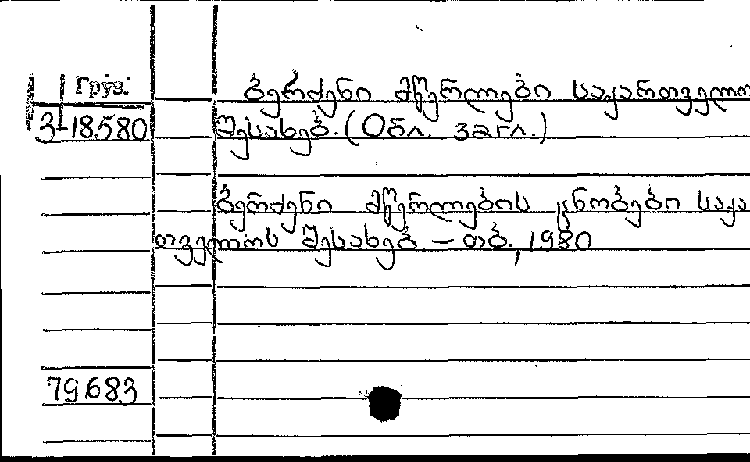 Груз.
ბერძენი მწერლები საქართველო
3-18.580
შესახებ. (Обл. загл.)
ბერძენი მწერლების ცნობები საქა
თველოს შესახებ – თბ., 1980
79.683